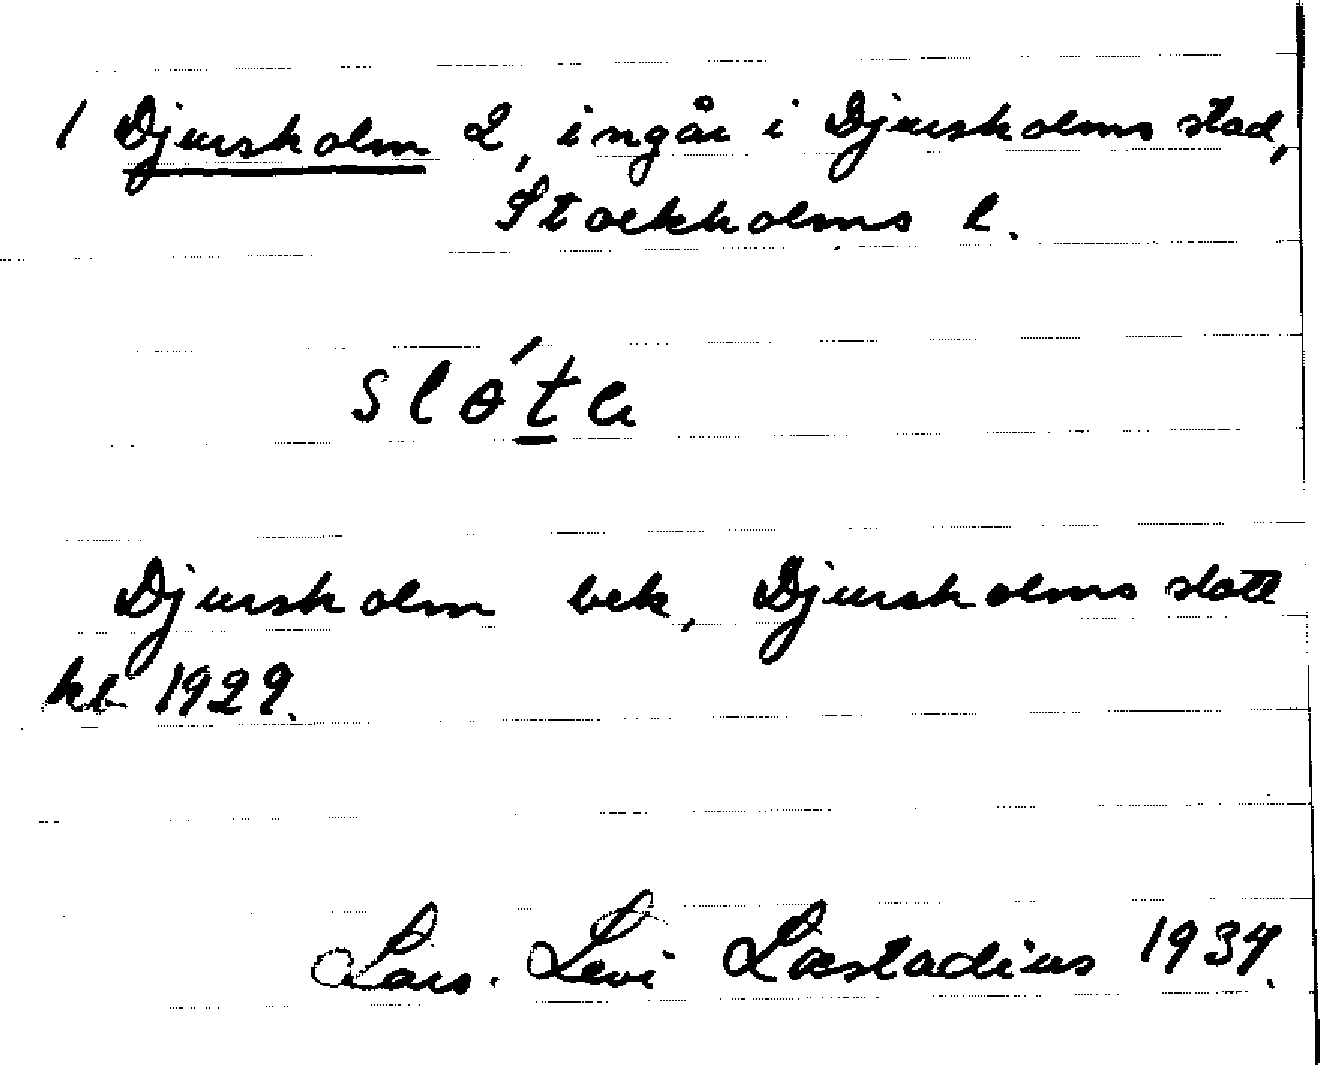 1 Djursholm 2, ingår i Djursholms stad,
Stockholms l.
slɵ́ta
Djursholm bek, Djursholms slott
kb 1929.
Lars. Levi Læstadius 1937.